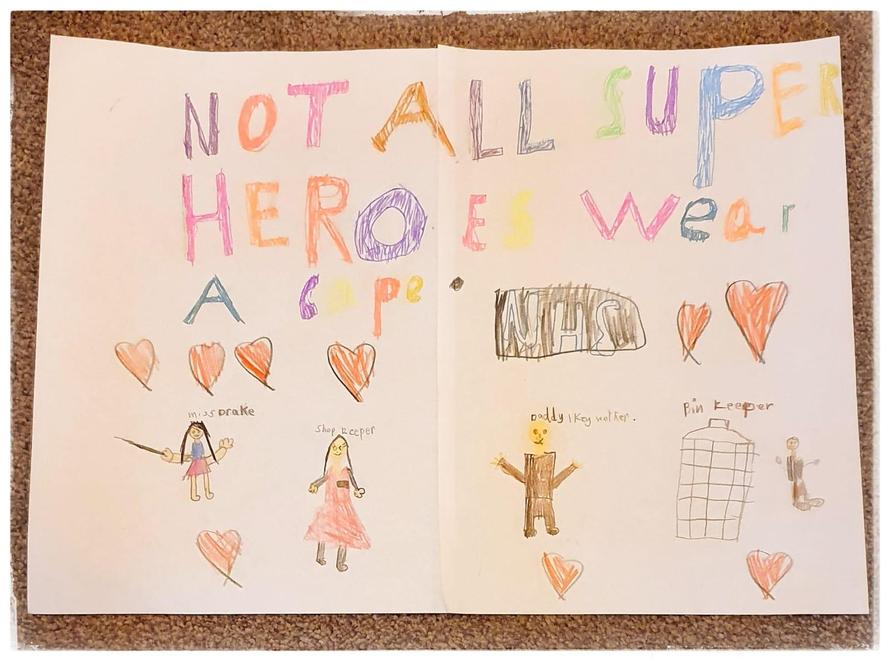 NOT ALL SUPER
HEROES wear
A cape.
NHS
miss Drake
Shop keeper
Daddy / Key worker.
Bin keeper